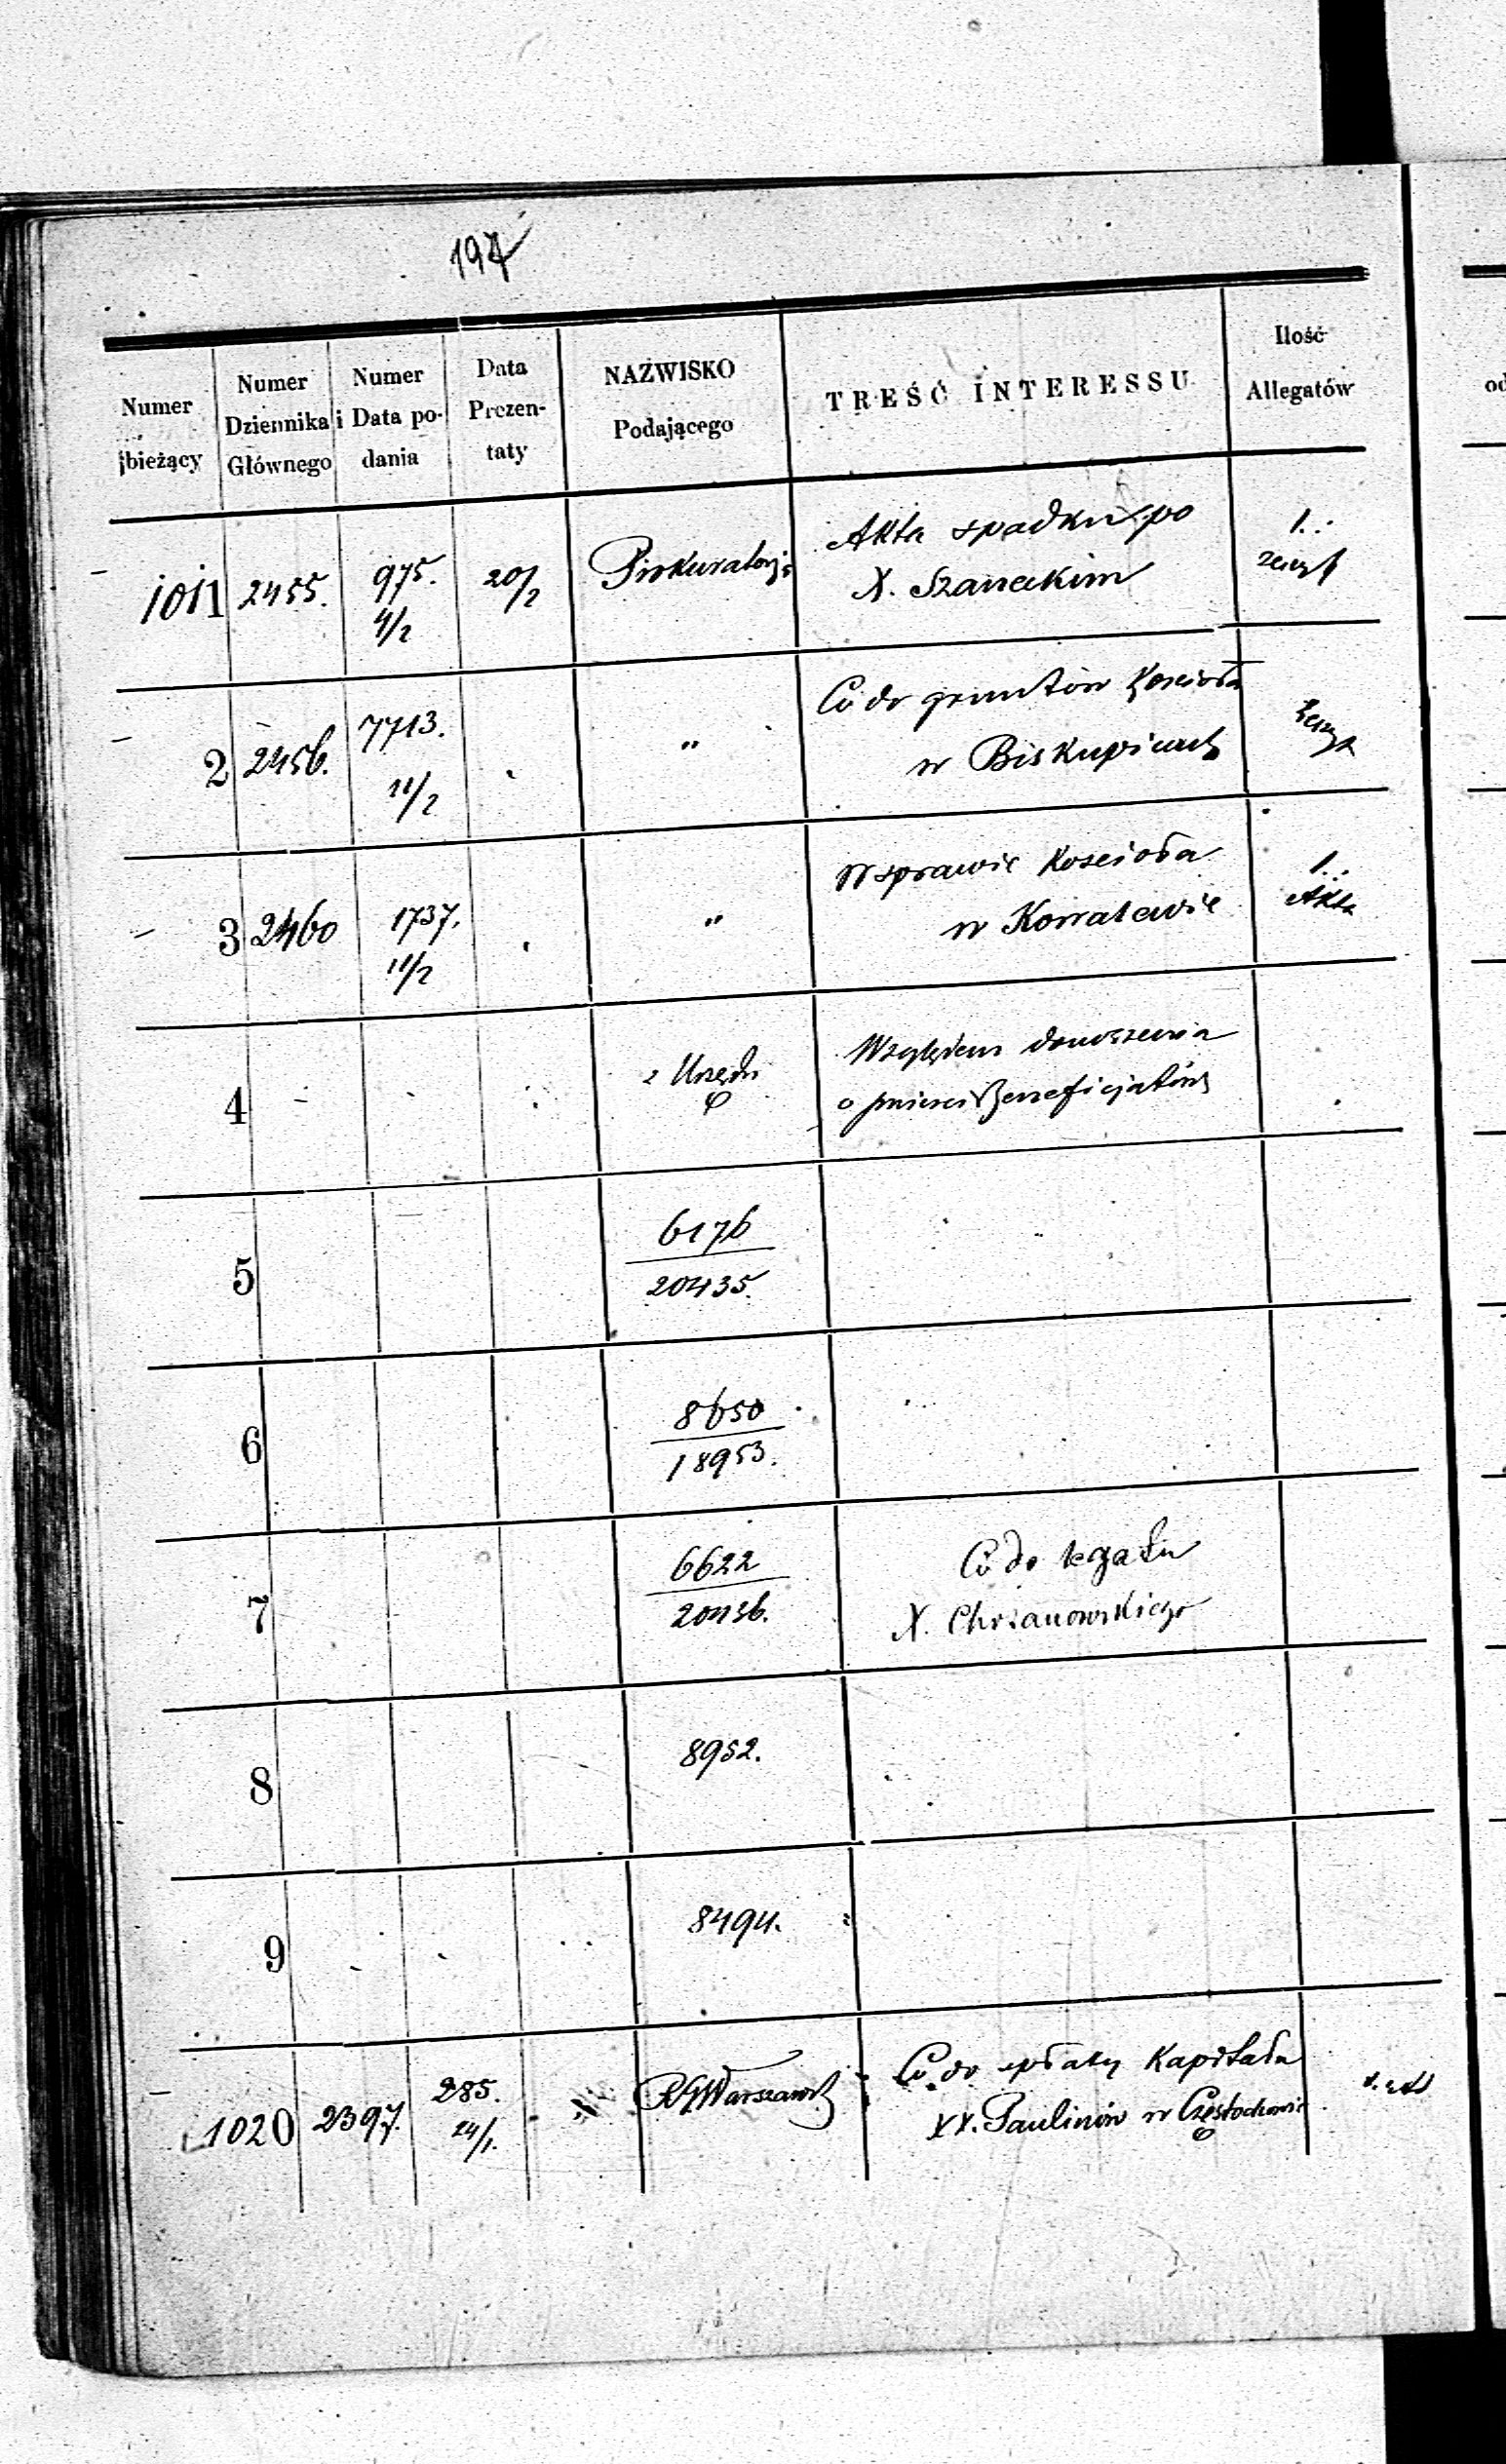 197
Numer bieżący
Numer Dziennika Głównego
Numer i Data podania
Data Prezentaty
NAZWISKO Podającego
TREŚĆ INTERESSU
Ilość Allegatów
1011 2455. 975. 4/2 20/2 Prokuratorja Akta spadku po 1.
X. Szaneckim
2 2456. 7713. 11/2 " Co do gruntów Kościoła
w Biskupicach
3 2460 1737. 11/2 " W sprawie Kościoła 1.
w Kowalewie Akta
4 z Urzędu Względem donoszenia
o śmierci Beneficjatów
5 6176
20435.
6 8650
18953.
7 6622 Co do legatu
20436. X. Chrzanowskiego
8 8952.
9 8494.
1020 2397. 285. 24/1. RGWarszaws Co do spłaty Kapitału
XX. Paulinów w Częstochowie